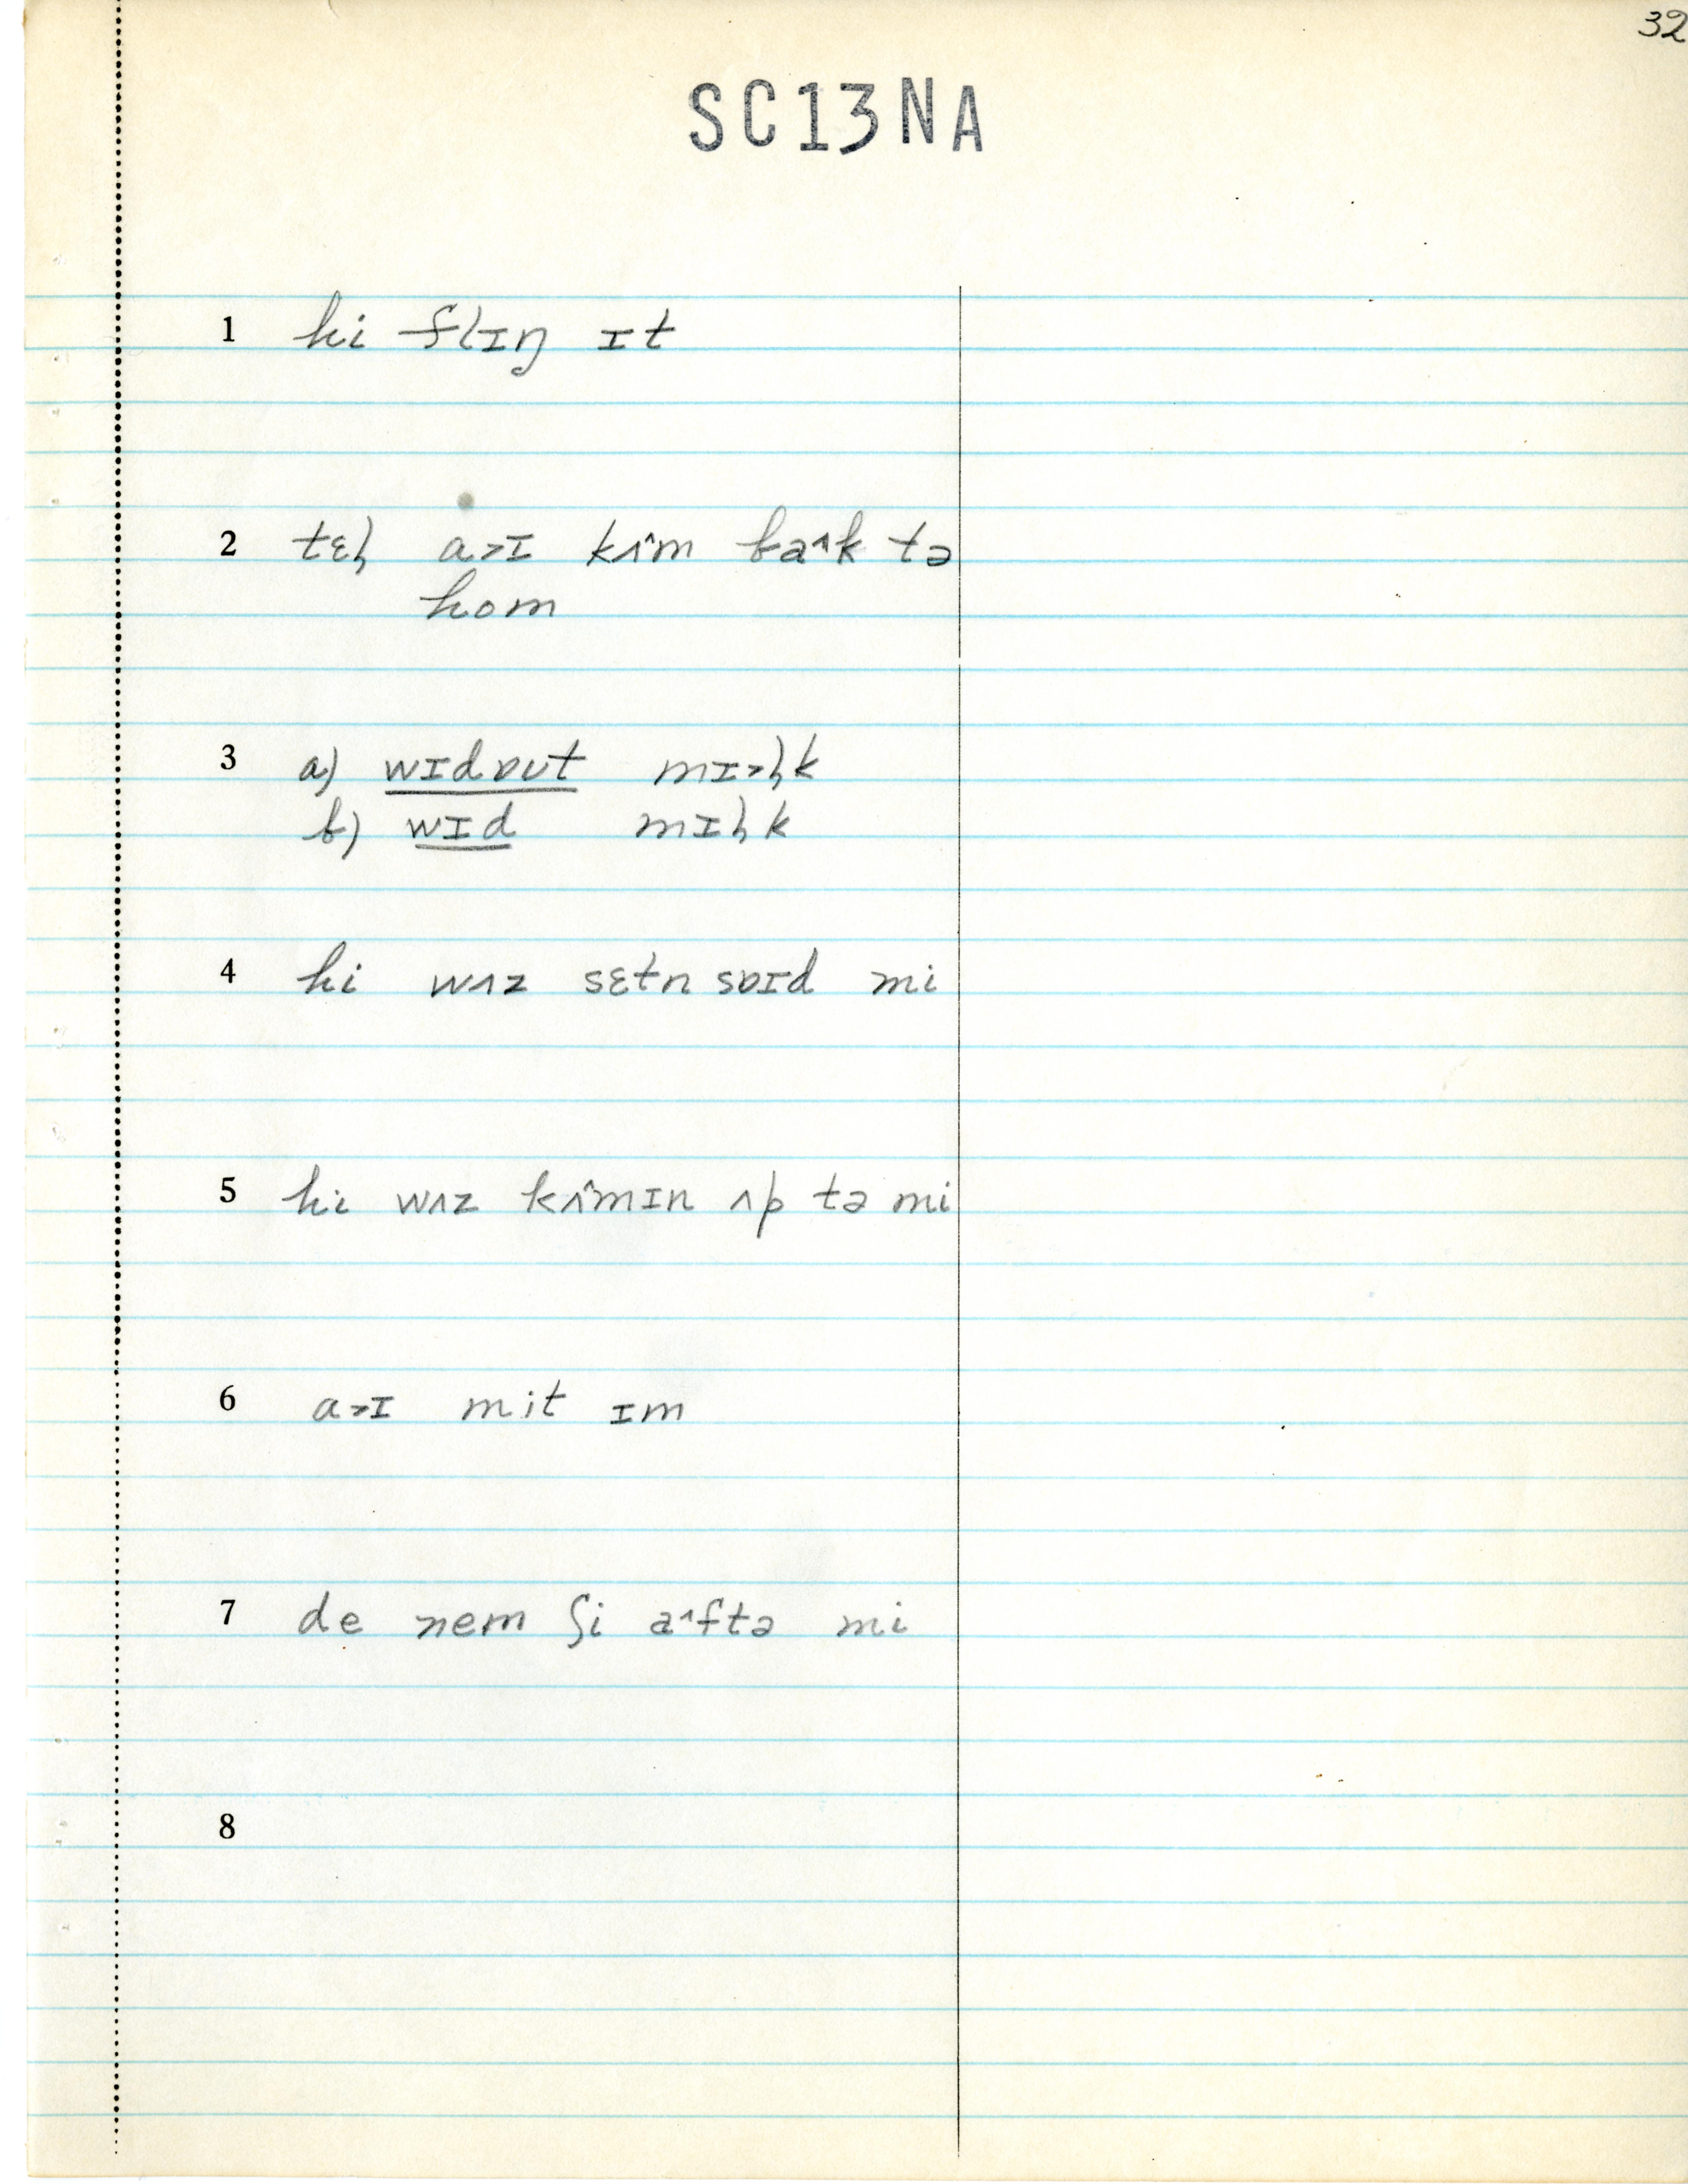 32
SC13NA
1 hi flɪŋ ɪt
2 tɛɫ a˃ɪ kʌ̂m ba˄k tə
hom
3 a) wɪdɒʊt mɪ˃ɫk
b) wɪd mɪɫk
4 hi wʌz sɛtn sɒɪd mi
5 hi wʌz kʌ̂mɪn ʌp tə mi
6 a˃ɪ mit ɪm
7 de nem ʃi a˄ftə mi
8